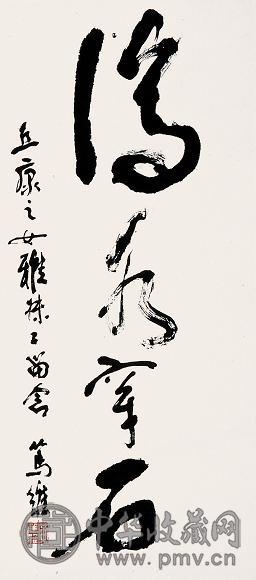 滴水穿石
丘康之女雅留念 篤維
中华收藏网
www.pmv.cn